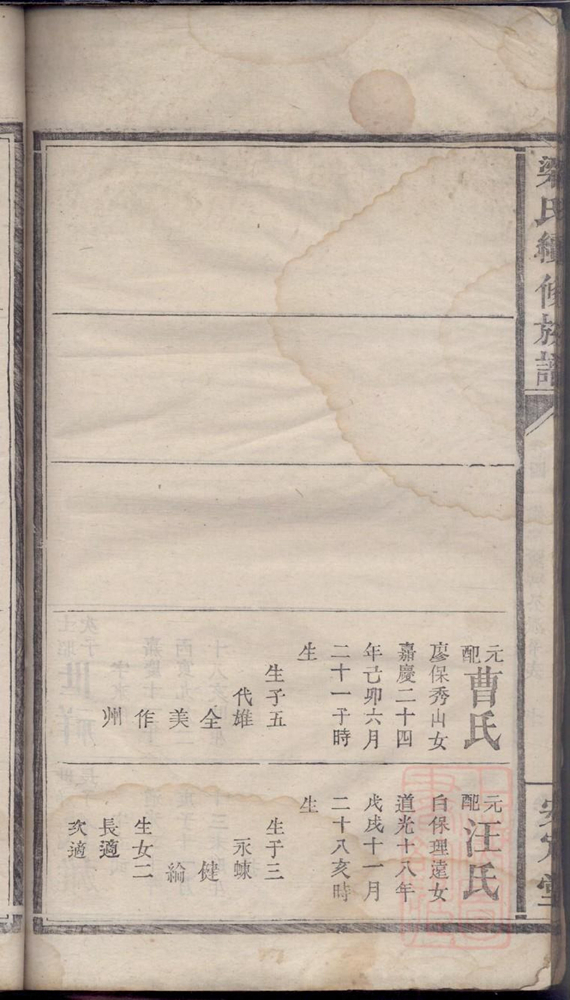 氏續修族譜
元配曹氏
廖保秀山女
嘉慶二十四
年己卯六月
二十一子時
生
生子五
代雄
全
美
作
州
元配汪氏
白保理遠女
道光十八年
戊戌十一月
二十八亥時
生
生子三
永㨂
健
綸
生女二
長適
次適